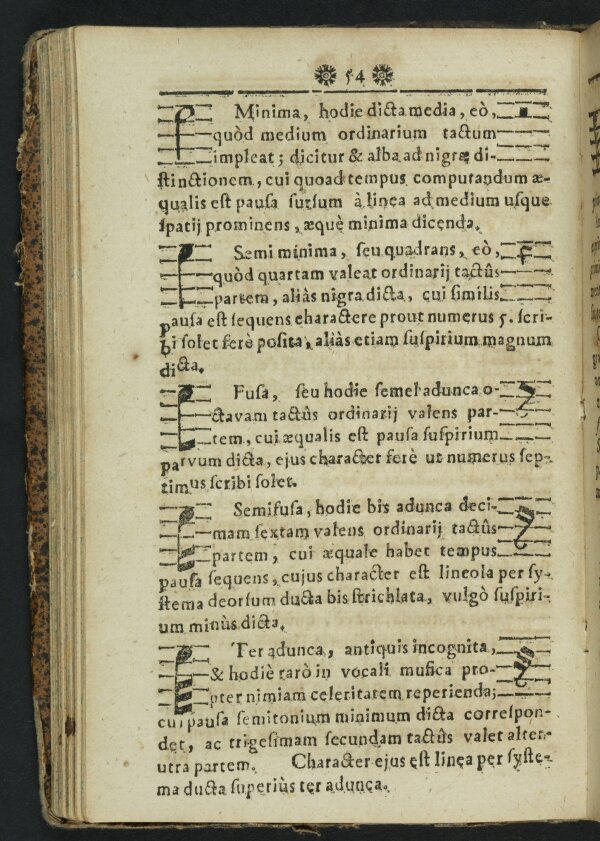 54
Minima, hodie dicta media, eò,
quòd medium ordinarium tactum
impleat; dicitur & alba ad nigræ di-
ſtinctionem, cui quoad tempus computandum æ-
qualis eſt pauſa ſurſum à linea ad medium uſque
ſpatij prominens, æquè minima dicenda.
Semi minima, ſeu quadrans, eò,
quòd quartam valeat ordinarij tactûs
partem, aliàs nigra dicta, cui ſimilis
pauſa eſt ſequens charactere prout numerus 5. ſcri-
bi ſolet ferè poſita, aliàs etiam ſuſpirium magnum
dicta.
Fuſa, ſeu hodie ſemel adunca o-
ctavam tactûs ordinarij valens par-
tem, cui æqualis eſt pauſa ſuſpirium
parvum dicta, ejus character ferè ut numerus ſep-
timus ſcribi ſolet.
Semifuſa, hodie bis adunca deci-
mam ſextam valens ordinarij tactûs
partem, cui æquale habet tempus
pauſa ſequens, cujus character eſt lineola per ſy-
ſtema deorſum ducta bis ſtrichlata, vulgò ſuſpiri-
um minùs dicta.
Ter adunca, antiquis incognita,
& hodiè rarò in vocali muſica pro-
pter nimiam celeritatem reperienda;
cui pauſa ſemitonium minimum dicta correſpon-
det, ac trigeſimam ſecundam tactûs valet alter-
utra partem. Character ejus eſt linea per ſyſte-
ma ducta ſuperiùs ter adunca.